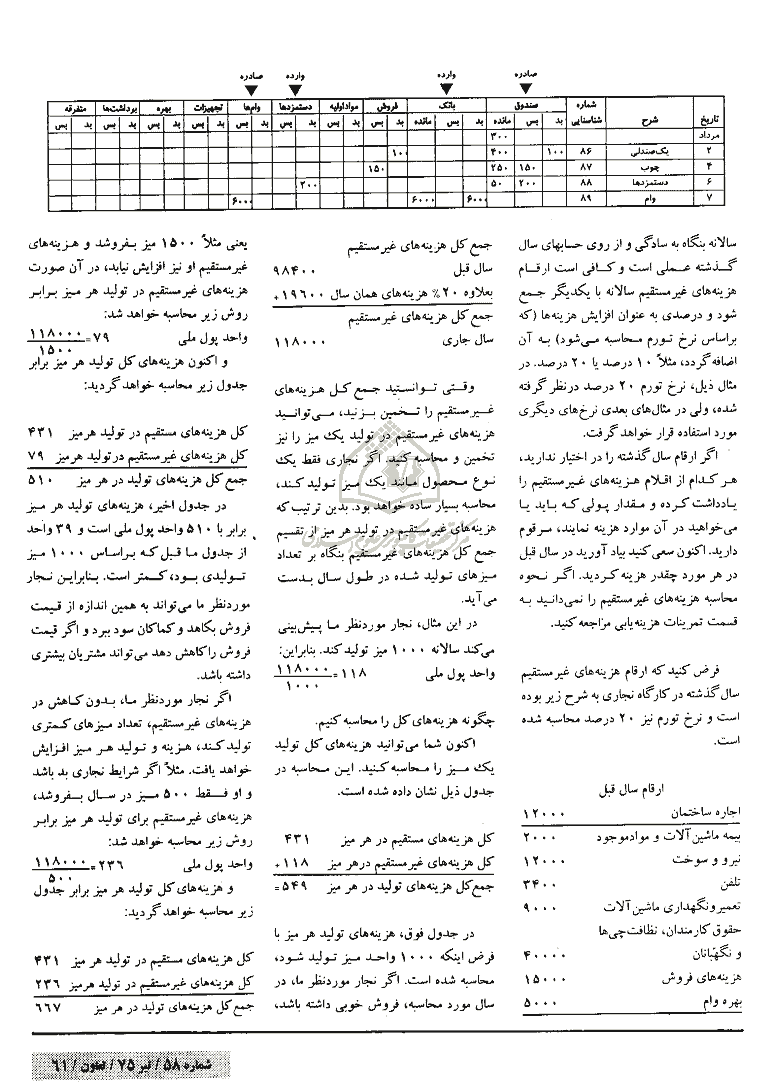 صادره
وارده
وارده
صادره
تاریخ شرح شماره شناسایی صندوق بانک فروش مواداولیه دستمزدها وام‌ها تجهیزات بهره برداشت‌ها متفرقه
بد بس مانده بد بس مانده بد بس بد بس بد بس بد بس بد بس بد بس بد بس بد بس
مرداد ۳۰۰
۲ یک‌صندلی ۸۶ ۱۰۰ ۴۰۰ ۱۰۰
۴ چوب ۸۷ ۱۵۰ ۲۵۰ ۱۵۰
۶ دستمزدها ۸۸ ۲۰۰ ۵۰ ۲۰۰
۷ وام ۸۹ ۶۰۰۰ ۶۰۰۰ ۶۰۰۰
سالانه بنگاه به سادگی و از روی حسابهای سال
گذشته عملی است و کافی است ارقام
هزینه‌های غیرمستقیم سالانه با یکدیگر جمع
شود و درصدی به عنوان افزایش هزینه‌ها (که
براساس نرخ تورم محاسبه می‌شود) به آن
اضافه گردد، مثلاً ۱۰ درصد یا ۲۰ درصد. در
مثال ذیل، نرخ تورم ۲۰ درصد درنظر گرفته
شده، ولی در مثال‌های بعدی نرخ‌های دیگری
مورد استفاده قرار خواهد گرفت.
اگر ارقام سال گذشته را در اختیار ندارید،
هر کدام از اقلام هزینه‌های غیرمستقیم را
یادداشت کرده و مقدار پولی که باید یا
می‌خواهید در آن موارد هزینه نمایند، مرقوم
دارید. اکنون سعی کنید بیاد آورید در سال قبل
در هر مورد چقدر هزینه کردید. اگر نحوه
محاسبه هزینه‌های غیرمستقیم را نمی‌دانید به
قسمت تمرینات هزینه‌یابی مراجعه کنید.
فرض کنید که ارقام هزینه‌های غیرمستقیم
سال گذشته در کارگاه نجاری به شرح زیر بوده
است و نرخ تورم نیز ۲۰ درصد محاسبه شده
است.
ارقام سال قبل
اجاره ساختمان ۱۲۰۰۰
بیمه ماشین آلات و موادموجود ۲۰۰۰
نیرو و سوخت ۱۲۰۰۰
تلفن ۳۴۰۰
تعمیرونگهداری ماشین آلات ۹۰۰۰
حقوق کارمندان، نظافت‌چی‌ها
و نگهبانان ۴۰۰۰۰
هزینه‌های فروش ۱۵۰۰۰
بهره وام ۵۰۰۰
جمع کل هزینه‌های غیرمستقیم
سال قبل ۹۸۴۰۰
بعلاوه ۲۰% هزینه‌های همان سال ۱۹۶۰۰+
جمع کل هزینه‌های غیرمستقیم
سال جاری ۱۱۸۰۰۰
وقتی توانستید جمع کل هزینه‌های
غیرمستقیم را تخمین بزنید، می‌توانید
هزینه‌های غیرمستقیم در تولید یک میز را نیز
تخمین و محاسبه کنید. اگر نجاری فقط یک
نوع محصول مانند یک میز تولید کند،
محاسبه بسیار ساده خواهد بود. بدین ترتیب که
هزینه‌های غیرمستقیم در تولید هر میز از تقسیم
جمع کل هزینه‌های غیرمستقیم بنگاه بر تعداد
میزهای تولید شده در طول سال بدست
می‌آید.
در این مثال، نجار موردنظر ما پیش‌بینی
می‌کند سالانه ۱۰۰۰ میز تولید کند. بنابراین:
واحد پول ملی ۱۱۸=۱۱۸۰۰۰/۱۰۰۰
چگونه هزینه‌های کل را محاسبه کنیم.
اکنون شما می‌توانید هزینه‌های کل تولید
یک میز را محاسبه کنید. این محاسبه در
جدول ذیل نشان داده شده است.
کل هزینه‌های مستقیم در هر میز ۴۳۱
کل هزینه‌های غیرمستقیم درهر میز ۱۱۸+
جمع‌کل هزینه‌های تولید در هر میز ۵۴۹=
در جدول فوق، هزینه‌های تولید هر میز با
فرض اینکه ۱۰۰۰ واحد میز تولید شود،
محاسبه شده است. اگر نجار موردنظر ما، در
سال مورد محاسبه، فروش خوبی داشته باشد،
یعنی مثلاً ۱۵۰۰ میز بفروشد و هزینه‌های
غیرمستقیم او نیز افزایش نیابد، در آن صورت
هزینه‌های غیرمستقیم در تولید هر میز برابر
روش زیر محاسبه خواهد شد:
واحد پول ملی ۷۹=۱۱۸۰۰۰/۱۵۰۰
و اکنون هزینه‌های کل تولید هر میز برابر
جدول زیر محاسبه خواهد گردید:
کل هزینه‌های مستقیم در تولید هرمیز ۴۳۱
کل هزینه‌های غیرمستقیم درتولید هرمیز ۷۹
جمع کل هزینه‌های تولید در هر میز ۵۱۰
در جدول اخیر، هزینه‌های تولید هر میز
برابر با ۵۱۰ واحد پول ملی است و ۳۹ واحد
از جدول ما قبل که براساس ۱۰۰۰ میز
تولیدی بود، کمتر است. بنابراین نجار
موردنظر ما می‌تواند به همین اندازه از قیمت
فروش بکاهد و کماکان سود ببرد و اگر قیمت
فروش راکاهش دهد می‌تواند مشتریان بیشتری
داشته باشد.
اگر نجار موردنظر ما، بدون کاهش در
هزینه‌های غیرمستقیم، تعداد میزهای کمتری
تولید کند، هزینه و تولید هر میز افزایش
خواهد یافت. مثلاً اگر شرایط نجاری بد باشد
و او فقط ۵۰۰ میز در سال بفروشد،
هزینه‌های غیرمستقیم برای تولید هر میز برابر
روش زیر محاسبه خواهد شد:
واحد پول ملی ۲۳۶=۱۱۸۰۰۰/۵۰۰
و هزینه‌های کل تولید هر میز برابر جدول
زیر محاسبه خواهد گردید:
کل هزینه‌های مستقیم در تولید هر میز ۴۳۱
کل هزینه‌های غیرمستقیم در تولید هرمیز ۲۳۶
جمع‌کل هزینه‌های تولید در هر میز ۶۶۷
شماره ۵۸ / تیر ۷۵ / تعاون / ۶۱